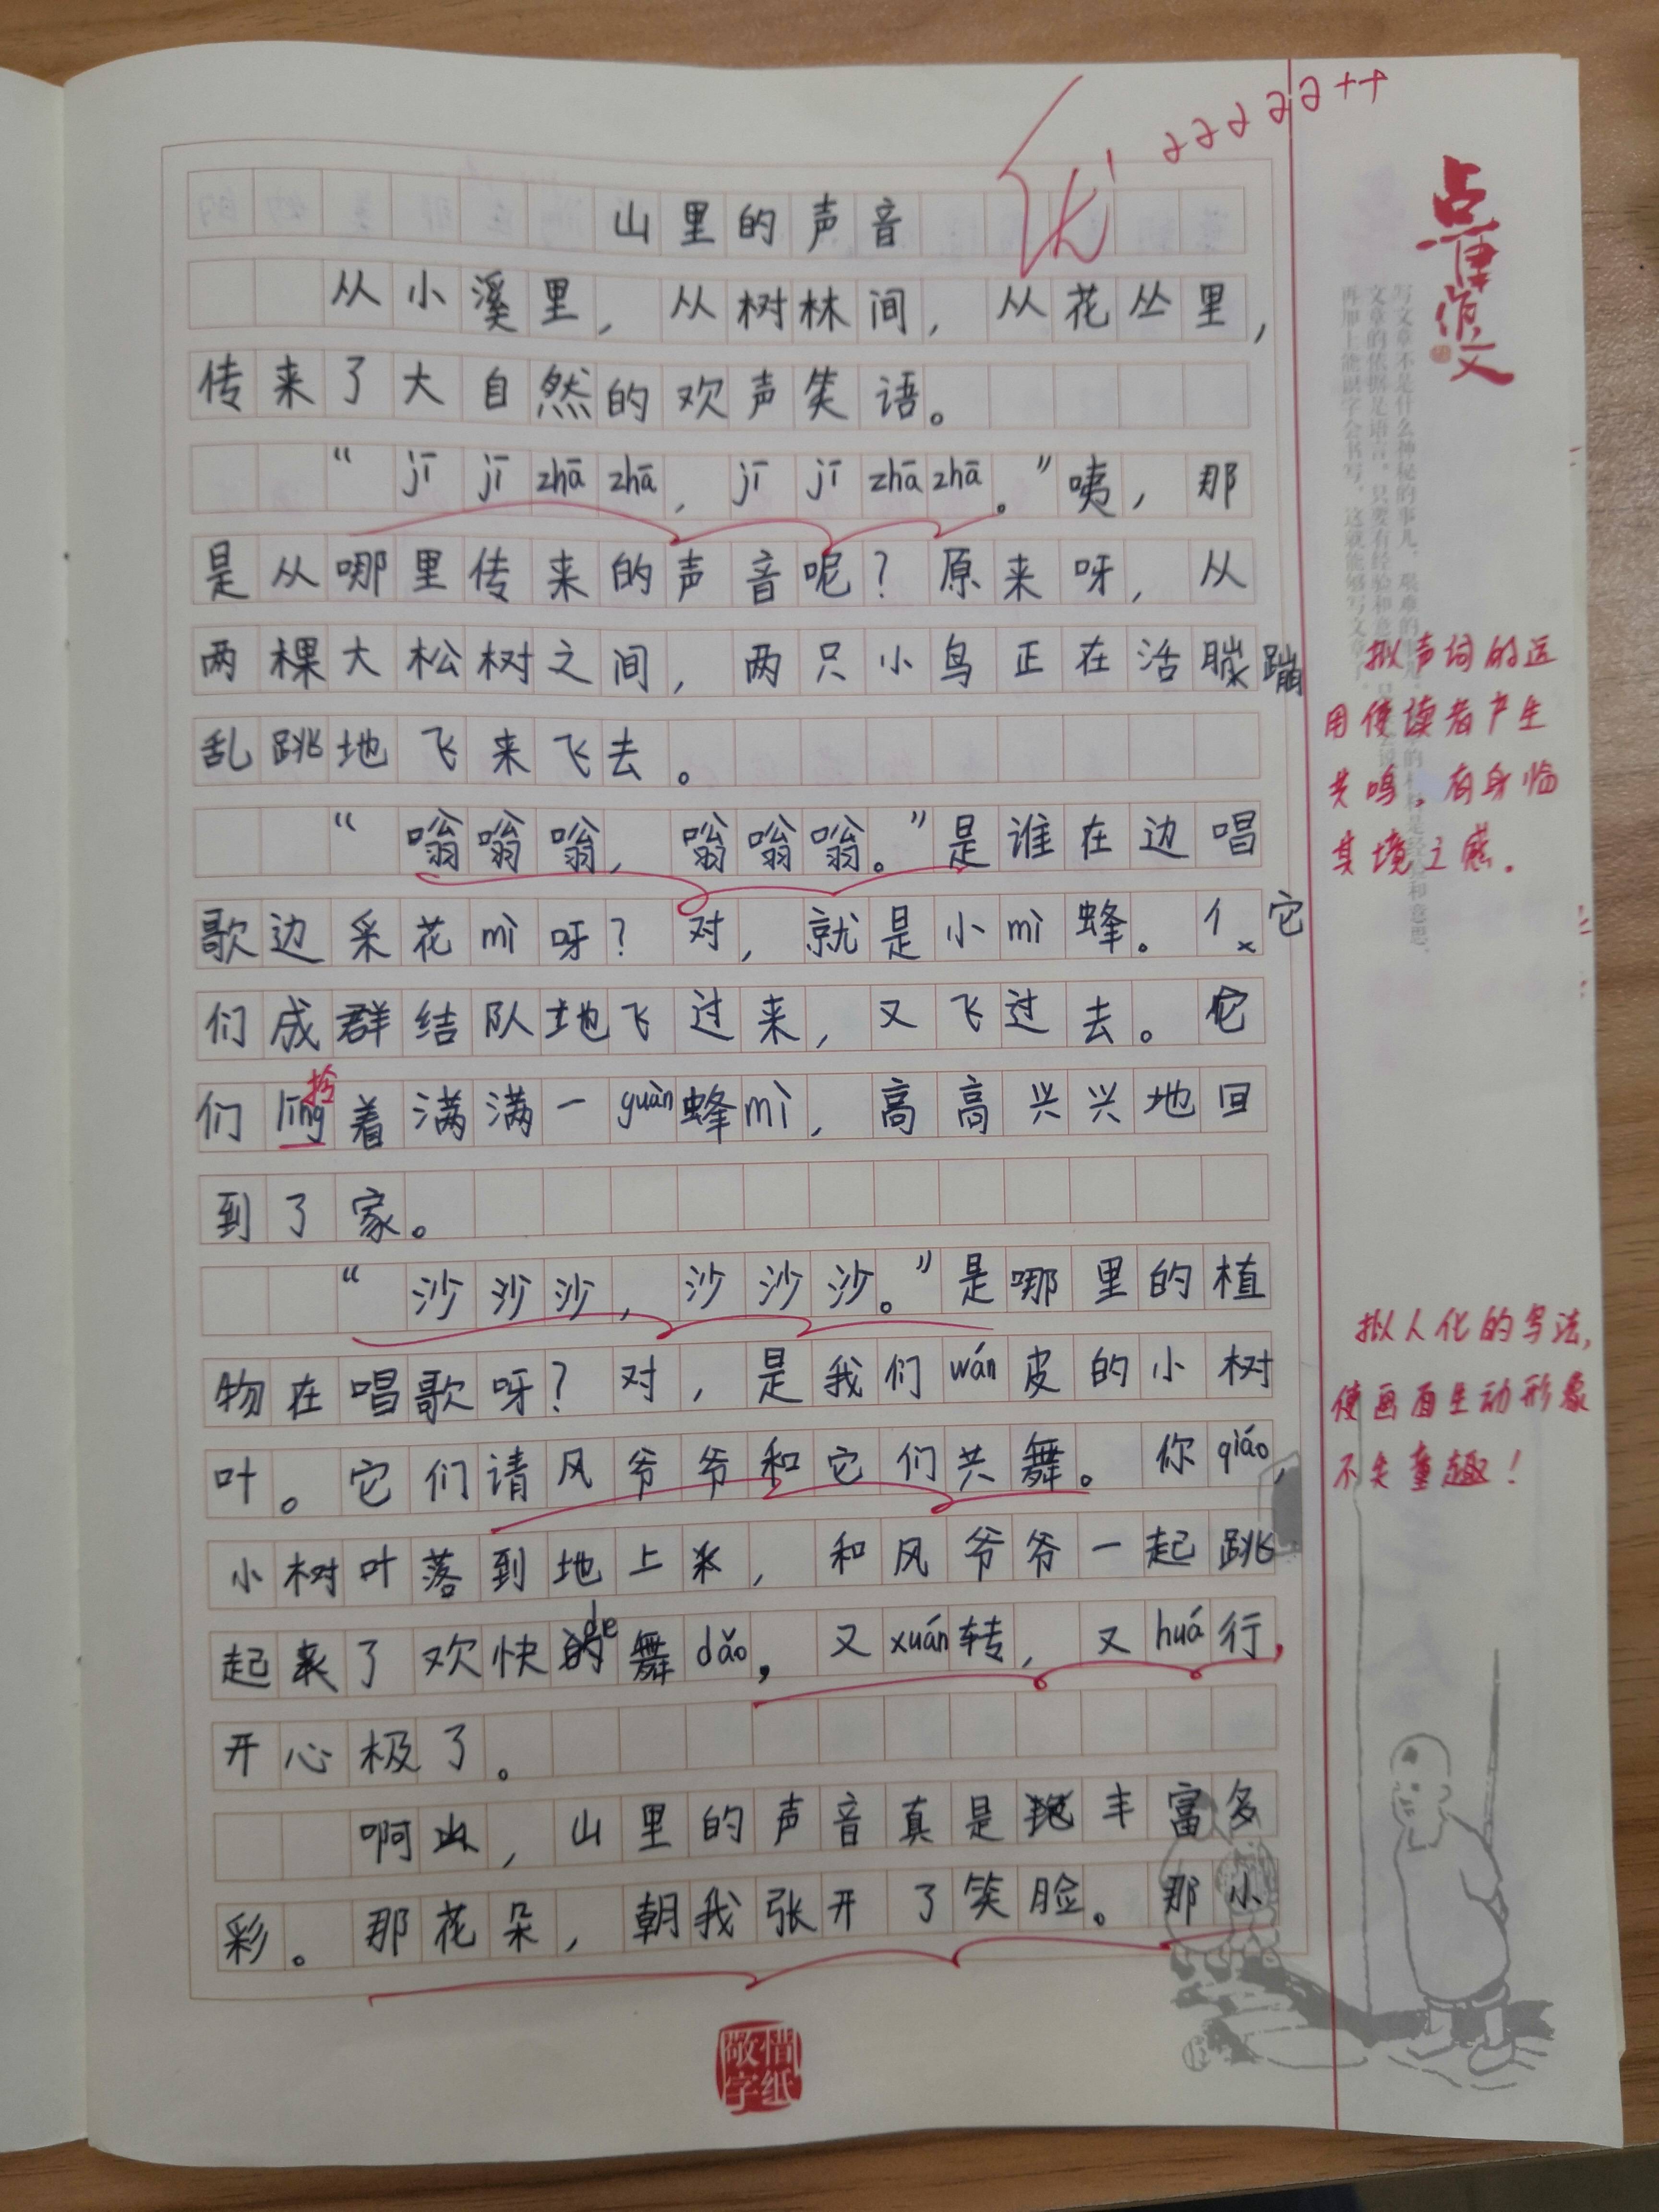 优 aaaaa++
山里的声音
从小溪里，从树林间，从花丛里，
传来了大自然的欢声笑语。
“jī jī zhā zhā，jī jī zhā zhā。”咦，那
是从哪里传来的声音呢？原来呀，从
两棵大松树之间，两只小鸟正在活蹦
乱跳地飞来飞去。
“嗡嗡嗡，嗡嗡嗡。”是谁在边唱
歌边采花mì呀？对，就是小mì蜂。它
们成群结队地飞过来，又飞过去。它
们līng着满满一guàn蜂mì，高高兴兴地回
拎
到了家。
“沙沙沙，沙沙沙。”是哪里的植
物在唱歌呀？对，是我们wán皮的小树
叶。它们请风爷爷和它们共舞。你qiáo，
小树叶落到地上来，和风爷爷一起跳
起来了欢快de舞dǎo，又xuán转，又huá行，
开心极了。
啊，山里的声音真是丰富多
彩。那花朵，朝我张开了笑脸。那小
点津作文
写文章不是什么神秘的事儿，艰难的
文章的依据是语言，只要有经验和意
再加上能识字会书写，这就能够写文章了。
拟声词的运
用使读者产生
共鸣，有身临
其境之感。
拟人化的写法，
使画面生动形象
不失童趣！
敬惜字纸